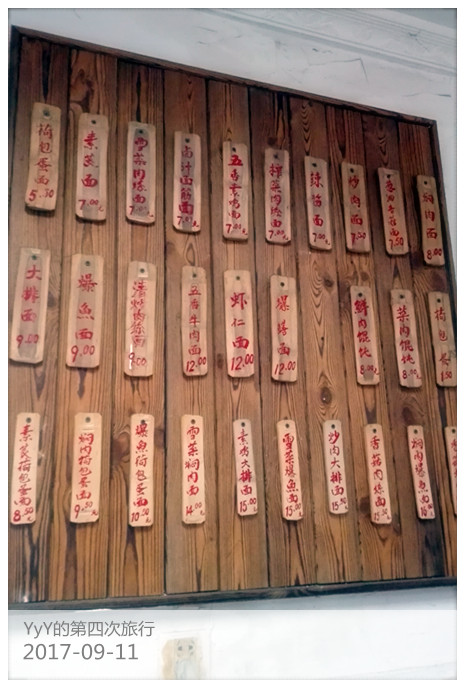 荷包蛋面 5.50
素菜面 7.00元
雪菜肉絲面 7.00元
卤汁面筋面 7.00元
五香素鸡面 7.00元
榨菜肉絲面 7.00元
辣酱面 7.50
炒肉面 7.50
香菇面 7.50
焖肉面 8.00
大排面 9.00
爆魚面 9.00
9.00
五香牛肉面 12.00
虾仁面 12.00
爆鳝面 12.00
鲜肉餛饨 8.00元
菜肉餛饨 8.00元
荷包蛋 1.50
素菜荷包蛋面 8.50元
焖肉荷包蛋面 9.50元
爆魚荷包蛋面 10.50元
雪菜焖肉面 14.00元
素鸡大排面 15.00元
雪菜爆魚面 15.00元
炒肉大排面 15.50元
香菇肉絲面 15.50元
焖肉爆魚面 16.00
YyY的第四次旅行
2017-09-11